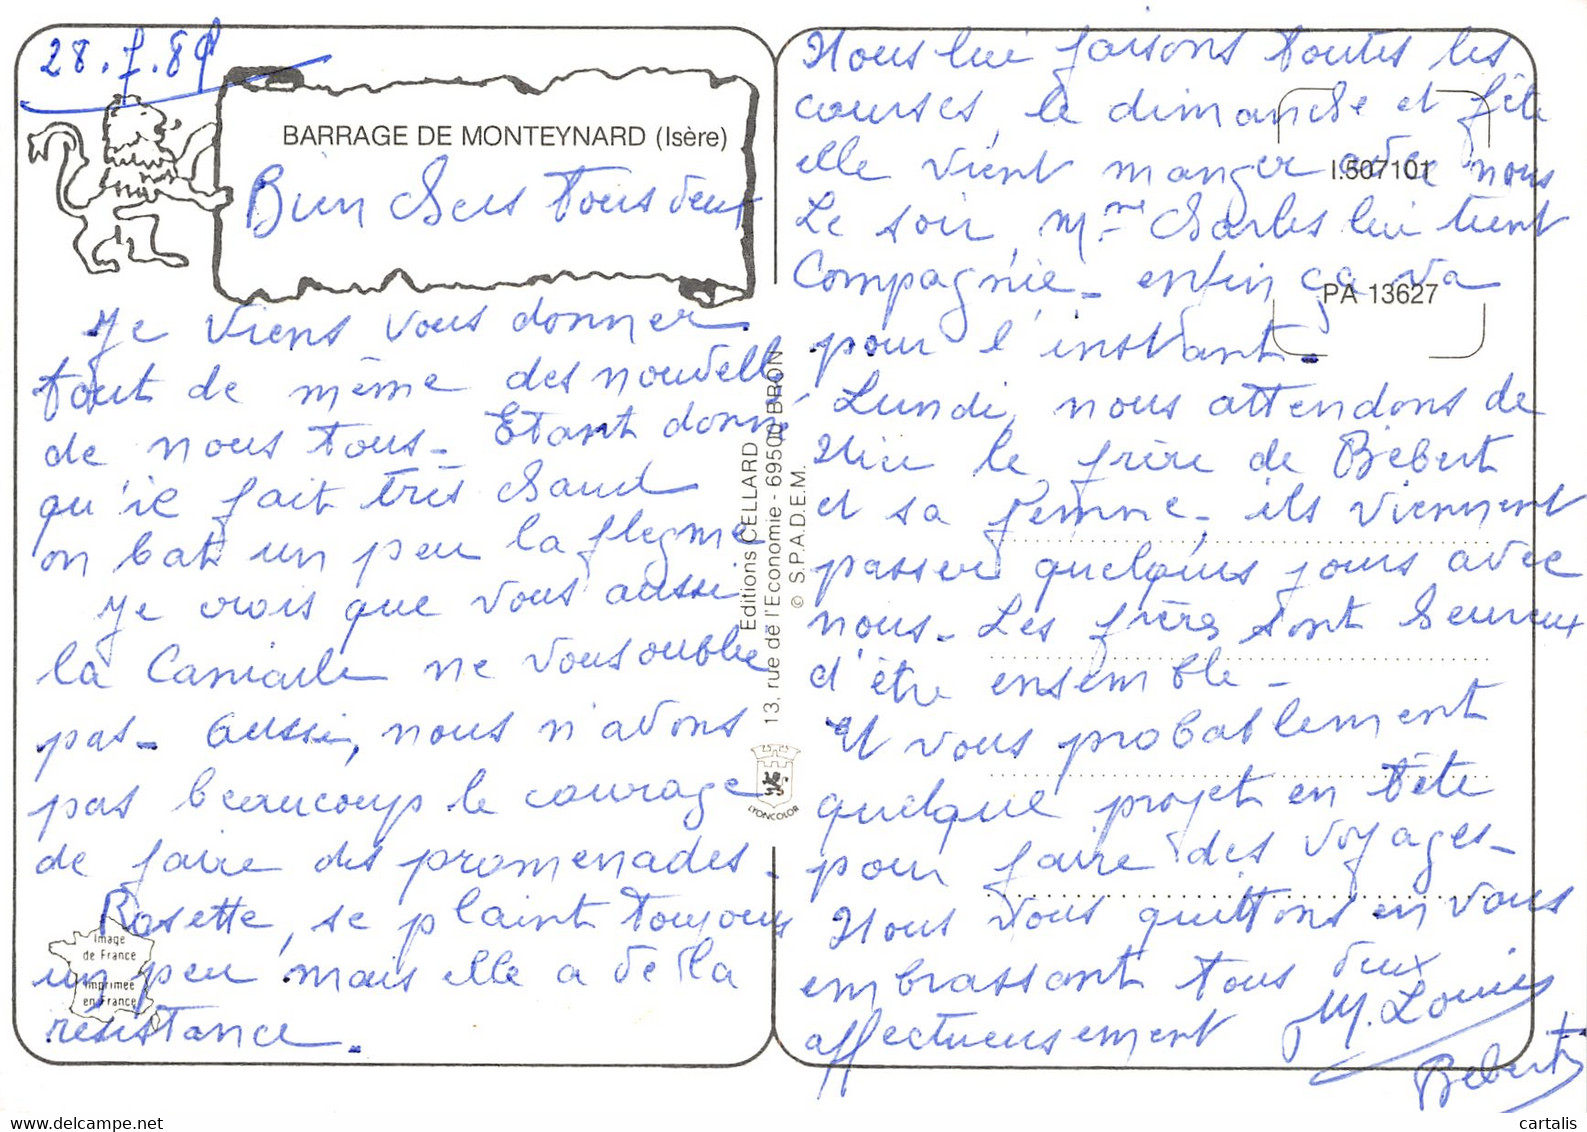 28.7.89
BARRAGE DE MONTEYNARD (Isère)
Bien chers tous deux
Je viens vous donner
tout de même des nouvelles
de nous tous - Etant donné
qu'il fait très chaud
on bat un peu la flegme
Je crois que vous aussi
la Canicule ne vous oublie
pas - aussi, nous n'avons
pas beaucoup le courage
de faire des promenades -
Rosette, se plaint toujours
un peu mais elle a de la
résistance.
Image
de France
Imprimée
en France
Editions CELLARD
13, rue de l'Economie - 69500 BRON
© S.P.A.D.E.M.
LYONCOLOR
Nous lui faisons toutes les
courses, le dimanche et fête
elle vient manger avec nous
I.507101
Le soir, Mme Charles lui tient
Compagnie - enfin ça va
PA 13627
pour l'instant.
Lundi, nous attendons de
Nice le frère de Bébert
et sa femme - ils viennent
passer quelques jours avec
nous - Les frères sont heureux
d'être ensemble -
Et vous probablement
quelque projet en tête
pour faire des voyages -
Nous vous quittons en vous
embrassant tous deux
affectueusement M. Louise
Bébert
cartalis